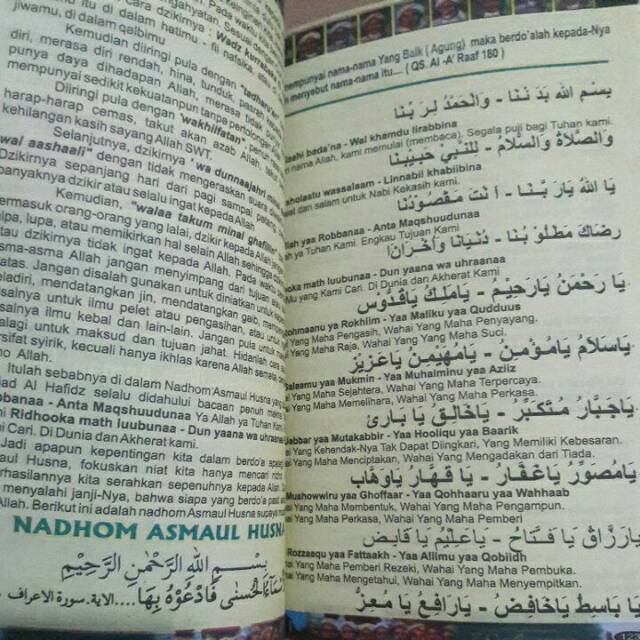 jiwamu, di dalam qalbimu
Kemudian diiringi pula dengan
diri, merasa diri rendah, hina, tunduk, pasrah
punya daya dihadapan Allah, merasa tidak
mempunyai sedikit kekuatanpun tanpa pertolongan
Diiringi pula dengan "wakhiifatan"
harap-harap cemas, takut akan azab Allah, takut
kehilangan kasih sayang Allah SWT.
Selanjutnya, dzikirnya "wa dunnaajahri
wal aashaali" dengan tidak mengeraskan suara
Dzikirnya sepanjang hari dari pagi sampai petang
banyaknya dzikir atau selalu ingat kepada Allah
Kemudian, "walaa takum minal ghafilin"
termasuk orang-orang yang lalai, dzikir kepada Allah
lupa, lupa, atau memikirkan hal selain Allah sehingga
atau dzikirnya tidak ingat kepada Allah. Pada
asma-asma Allah jangan menyimpang dari tujuan
atas. Jangan disalah gunakan untuk diniatkan untuk
beladiri, mendatangkan jin, mendatangkan gaib,
salnya untuk ilmu pelet atau pengasihan, atau untuk
salnya ilmu kebal dan lain-lain. Jangan pula untuk
alagi untuk maksud dan tujuan jahat. Hidarilah
rsifat syirik, kecuali hanya ikhlas karena Allah
no Allah.
Itulah sebabnya di dalam Nadhom Asmaul Husna
ad Al Hafidz selalu didahului bacaan penuh
obbanaa - Anta Maqshuudunaa Ya Allah ya Tuhan
ni Ridhooka math luubunaa - Dun yaana wa uhraanaa
ni Cari. Di Dunia dan Akherat kami.
Jadi apapun kepentingan kita dalam berdo'a
aul Husna, fokuskan niat kita hanya mencari ridho
erhasilannya kita serahkan sepenuhnya kepada Allah
menyalahi janji-Nya, bahwa siapa yang berdo'a pasti
Allah. Berikut ini adalah nadhom Asmaul Husna
NADHOM ASMAUL HUSNA
بِسْمِ اللهِ الرَّحْمٰنِ الرَّحِيْمِ
الْحُسْنٰى فَادْعُوْهُ بِهَا....الاية. سورة الاعراف
mempunyai nama-nama Yang Baik ( Agung) maka berdo'alah kepada-Nya
menyebut nama-nama itu... ( QS. Al -A' Raaf 180 )
بِسْمِ اللهِ بَدَنْنَا - وَالْحَمْدُ لِرَبِّنَا
laahi bada'na - Wal khamdu lirabbina
nama Allah, kami memulai (membaca). Segala puji bagi Tuhan kami.
وَالصَّلَاةُ وَالسَّلَامُ - لِلنَّبِيْ حَبِيْبِنَا
sholaatu wassalaam - Linnabil khabiibina
at dan salam untuk Nabi Kekasih kami.
يَا اللهُ يَا رَبَّنَا - اَنْتَ مَقْصُوْدُنَا
lah yaa Robbanaa - Anta Maqshuudunaa
ah ya Tuhan Kami. Engkau Tujuan Kami
رِضَاكَ مَطْلُوْبُنَا - دُنْيَانَا وَاُخْرَانَا
ooka math luubunaa - Dun yaana wa uhraanaa
Mu yang Kami Cari. Di Dunia dan Akherat Kami
يَا رَحْمٰنُ يَا رَحِيْمُ - يَا مَلِكُ يَا قُدُّوْسُ
ohmaanu ya Rokhiim - Yaa Maliku yaa Qudduus
ai Yang Maha Pengasih, Wahai Yang Maha Penyayang,
ai Yang Maha Raja, Wahai Yang Maha Suci.
يَا سَلَامُ يَا مُؤْمِنُ - يَا مُهَيْمِنُ يَا عَزِيْزُ
Salaamu yaa Mukmin - Yaa Muhaiminu yaa Aziiz
ai Yang Maha Sejahtera, Wahai Yang Maha Terpercaya.
ai Yang Maha Memelihara, Wahai Yang Maha Perkasa.
يَا جَبَّارُ مُتَكَبِّرُ - يَا خَالِقُ يَا بَارِئُ
Jabbar yaa Mutakabbir - Yaa Hooliqu yaa Baarik
ai Yang Kehendak-Nya Tak Dapat DIingkari, Yang Memiliki Kebesaran.
ai Yang Maha Menciptakan, Wahai Yang Mengadakan dari Tiada.
يَا مُصَوِّرُ يَا غَفَّارُ - يَا قَهَّارُ يَا وَهَّابُ
Mushowwiru yaa Ghoffaar - Yaa Qohhaaru yaa Wahhaab
ai Yang Maha Membentuk, Wahai Yang Maha Pengampun.
ai Yang Maha Perkasa, Wahai Yang Maha Pemberi
يَا رَزَّاقُ يَا فَتَّاحُ - يَا عَلِيْمُ يَا قَابِضُ
Rozzaaqu yaa Fattaakh - Yaa Aliimu yaa Qobiidh
ai Yang Maha Pemberi Rezeki, Wahai Yang Maha Pembuka.
ai Yang Maha Mengetahui, Wahai Yang Maha Menyempitkan.
يَا بَاسِطُ يَا خَافِضُ - يَا رَافِعُ يَا مُعِزُّ